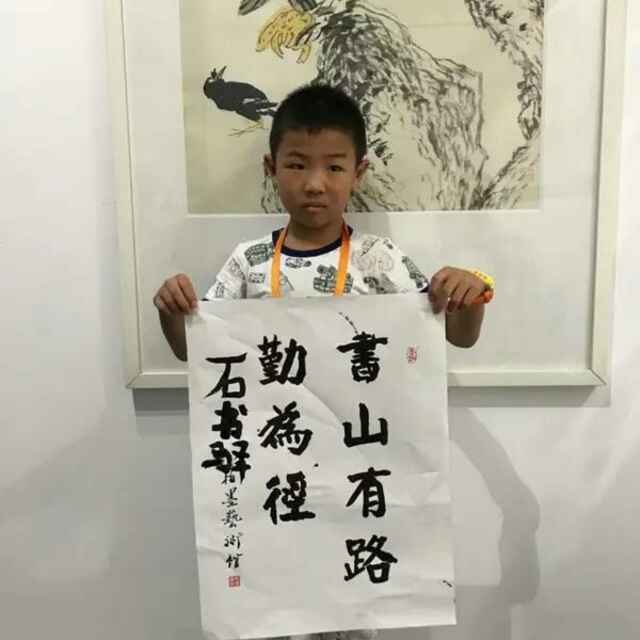 書山有路
勤為徑
石書驛
墨藝術館